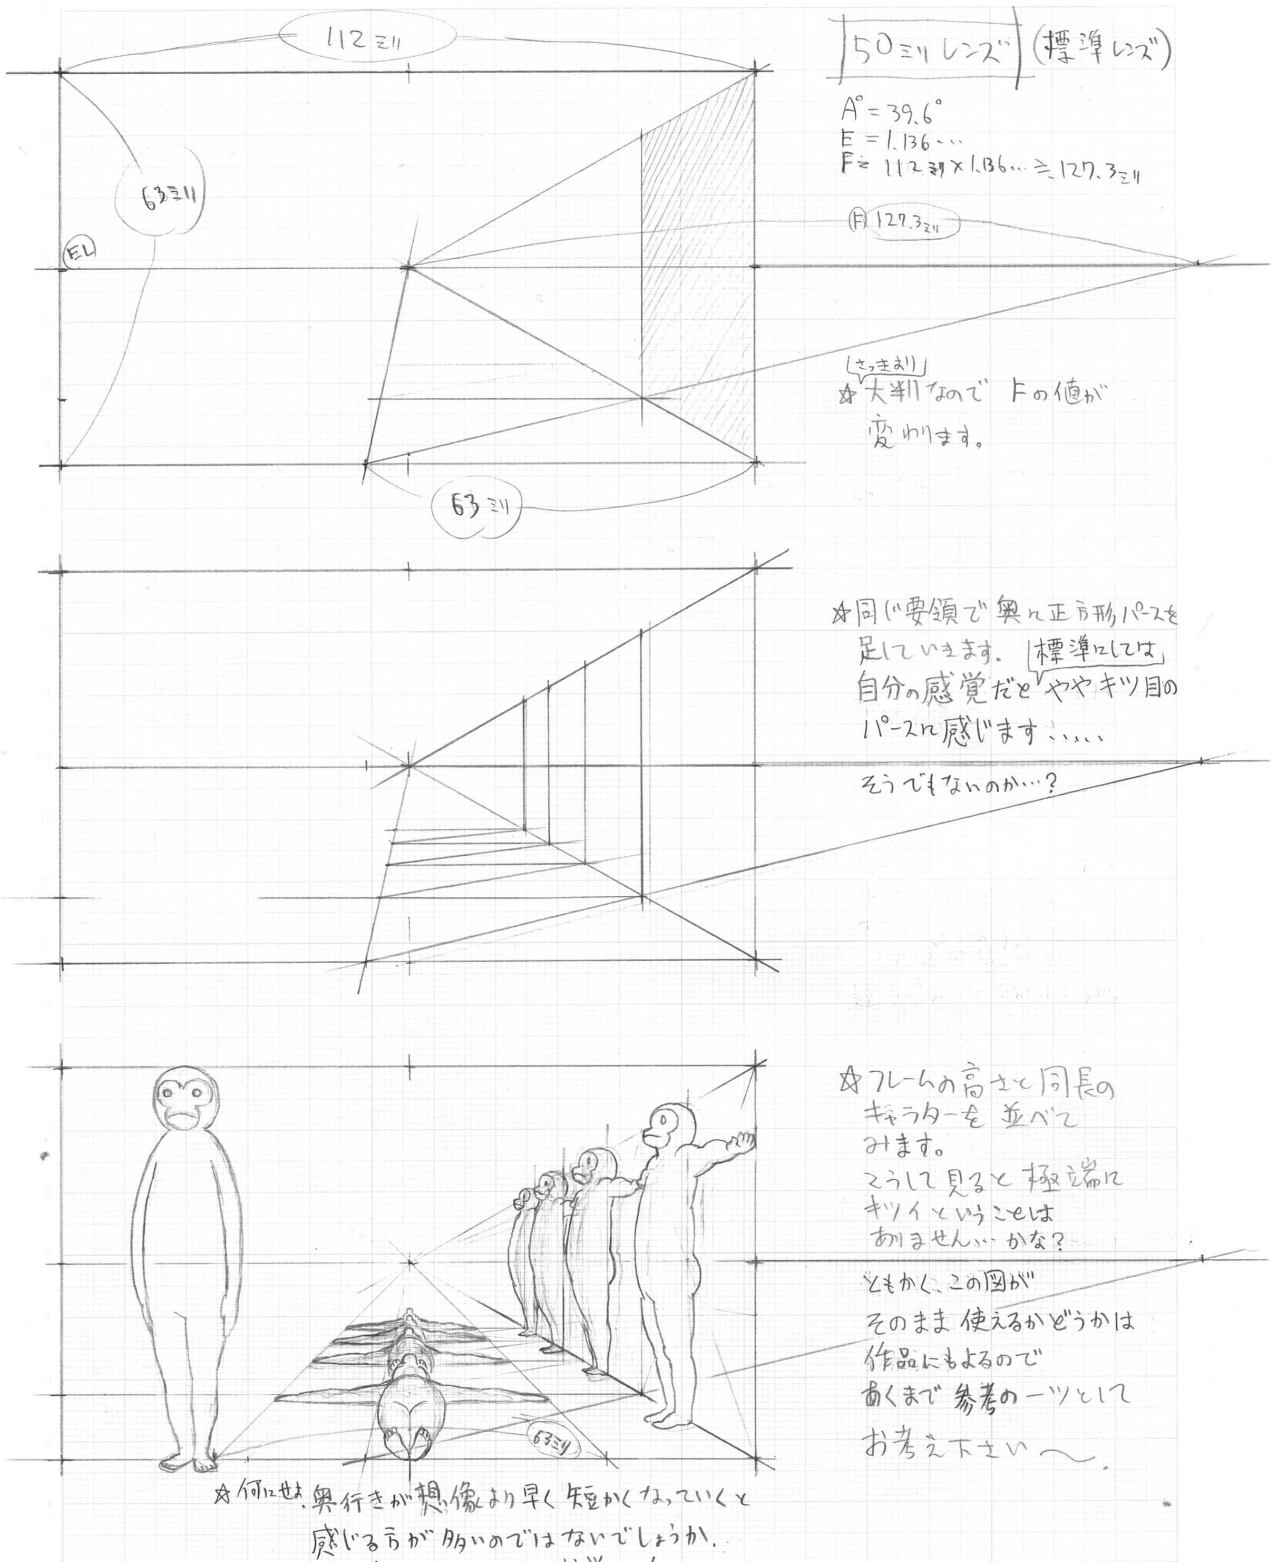 112ミリ
50ミリレンズ (標準レンズ)
A°=39.6°
E=1.136…
F≒112ミリ×1.136…≒127.3ミリ
63ミリ
EL
F 127.3ミリ
さっきより
☆大判なので Fの値が
変わります。
63ミリ
☆同じ要領で奥に正方形パースを
足していきます. 標準にしては
自分の感覚だと やや キツ目の
パースに感じます.....
そうでもないのか…?
☆フレームの高さと同長の
キャラターを並べて
みます。
こうして見ると極端に
キツイということは
ありません…かな?
ともかく、この図が
そのまま使えるかどうかは
作品にもよるので
あくまで参考の一ツとして
お考え下さい〜.
63ミリ
☆何にせよ、奥行きが想像より早く短かくなっていくと
感じる方が多いのではないでしょうか.